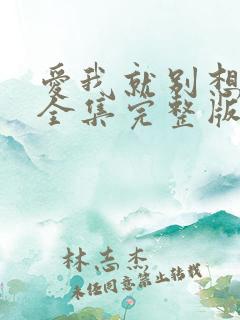 爱我就别想
全集完整版
林志杰
未经同意禁止转载